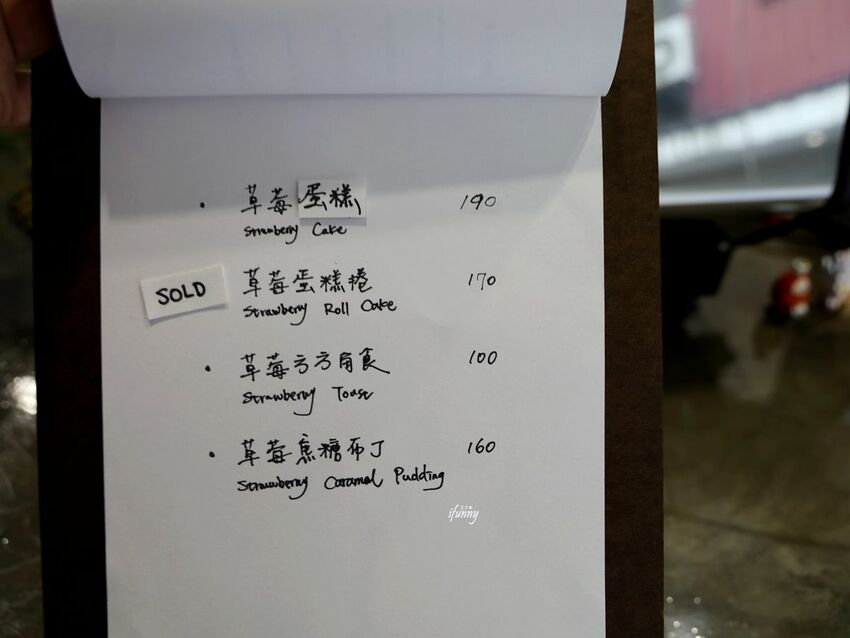 · 草莓蛋糕 190
Strawberry Cake
SOLD 草莓蛋糕捲 170
Strawberry Roll Cake
· 草莓方方角食 100
Strawberry Toast
· 草莓焦糖布丁 160
Strawberry Caramel Pudding
ifunny